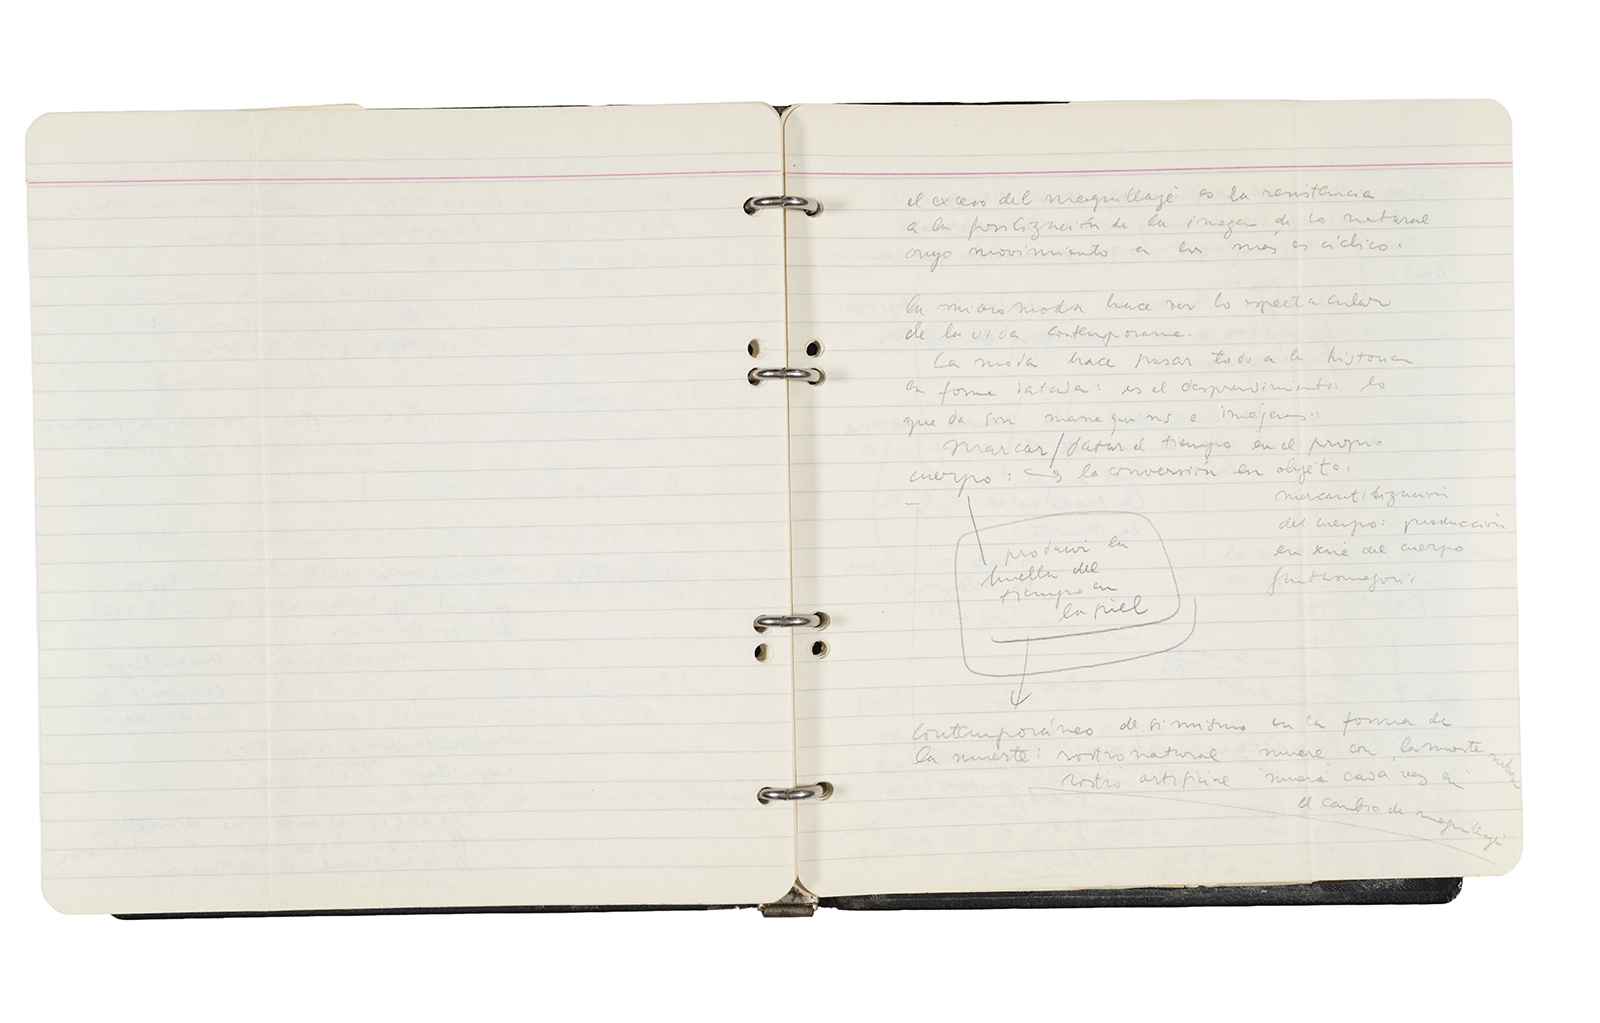 el exceso del maquillaje es la resistencia
a la fosilización de la imagen de lo natural
cuyo movimiento es cíclico.
la micromoda hace ver lo espectacular
de la vida contemporanea.
La moda hace pasar todo a la historia
en forma datada: es el desprendimiento: lo
que da son manequins e imágenes..
Marcar/datar el tiempo en el propio
cuerpo: → la conversión en objeto.
mercantilización
del cuerpo: producción
en serie del cuerpo
producir la
huella del
tiempo en
la piel
Contemporáneo de si mismo en la forma de
la muerte: rostro natural muere con la muerte
rostro artificial muere cada vez en
el cambio de maquillaje